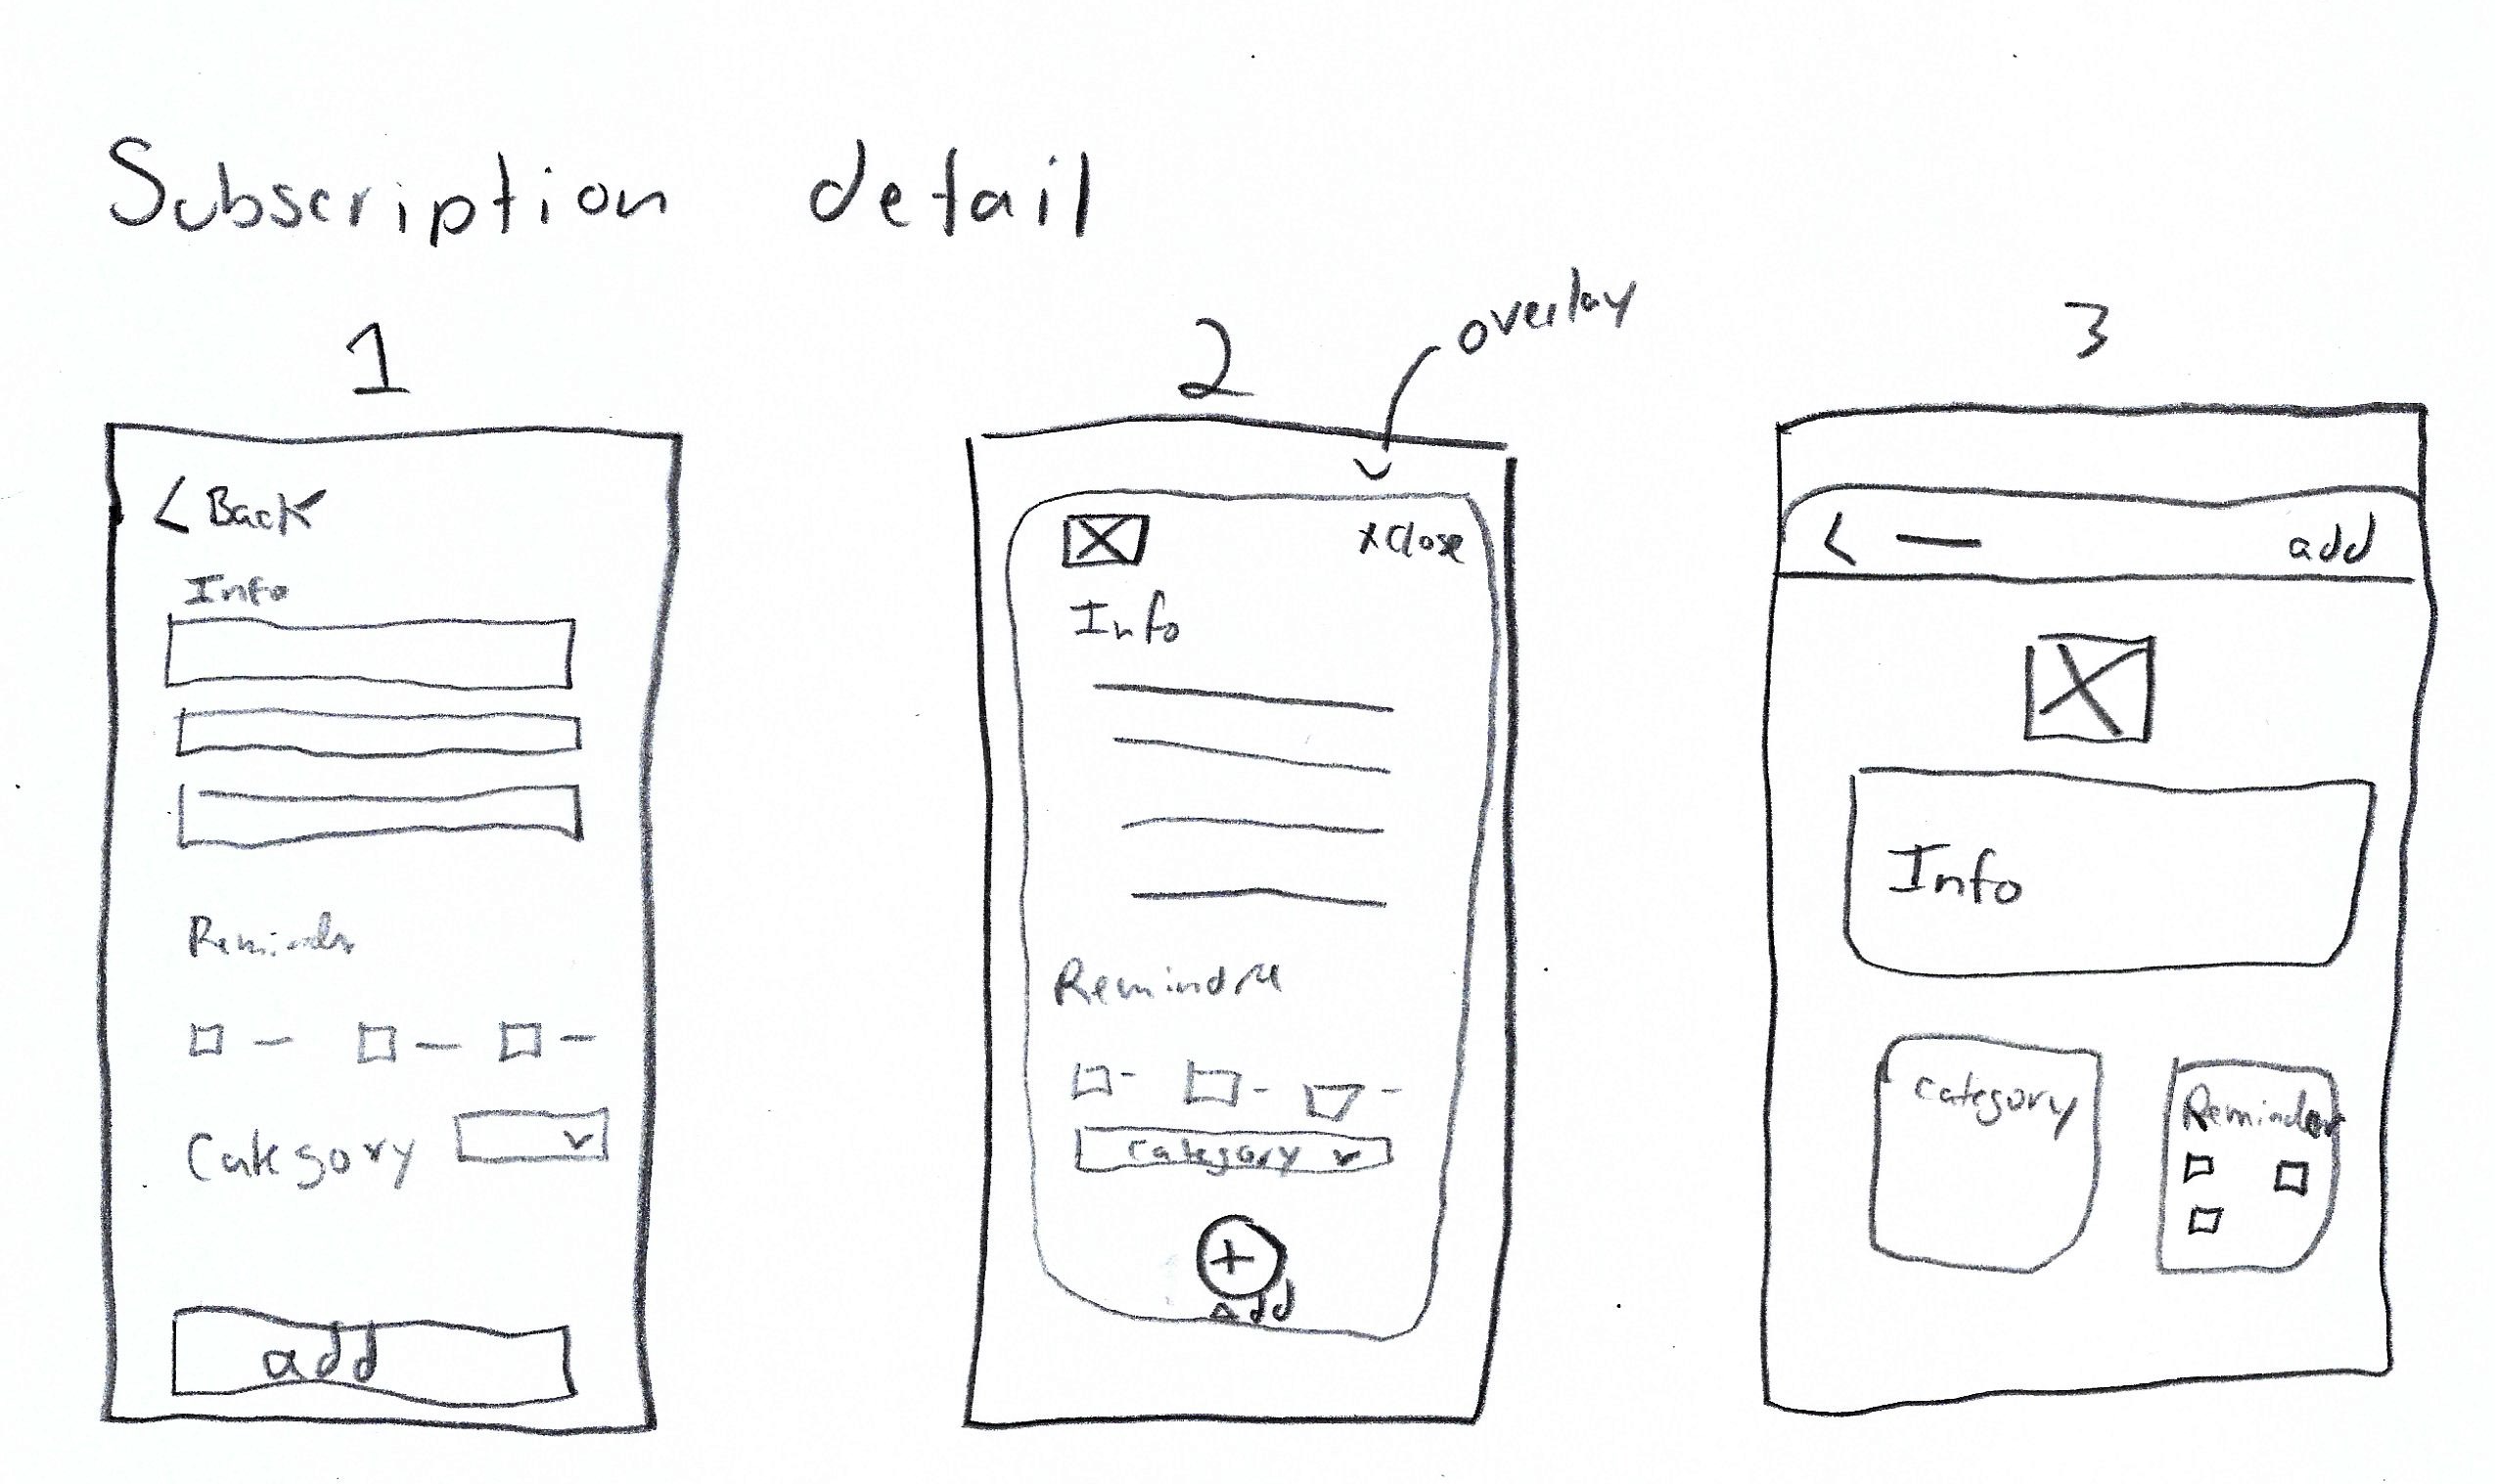 Subscription detail
1
2
overlay
3
< Back
Info
Reminder
Category
add
x Close
Info
Reminder
Category
+
Add
< add
Info
Category
Reminder